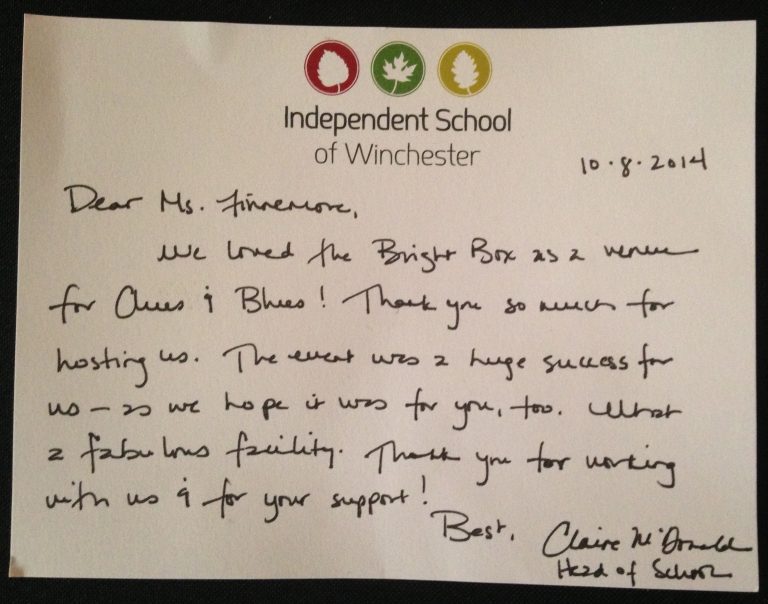 Independent School
of Winchester
10.8.2014
Dear Ms. Finnemore,
We loved the Bright Box as a venue
for Clues & Blues! Thank you so much for
hosting us. The event was a huge success for
us - as we hope it was for you, too. What
a fabulous facility. Thank you for working
with us & for your support!
Best,
Claire McDonald
Head of School